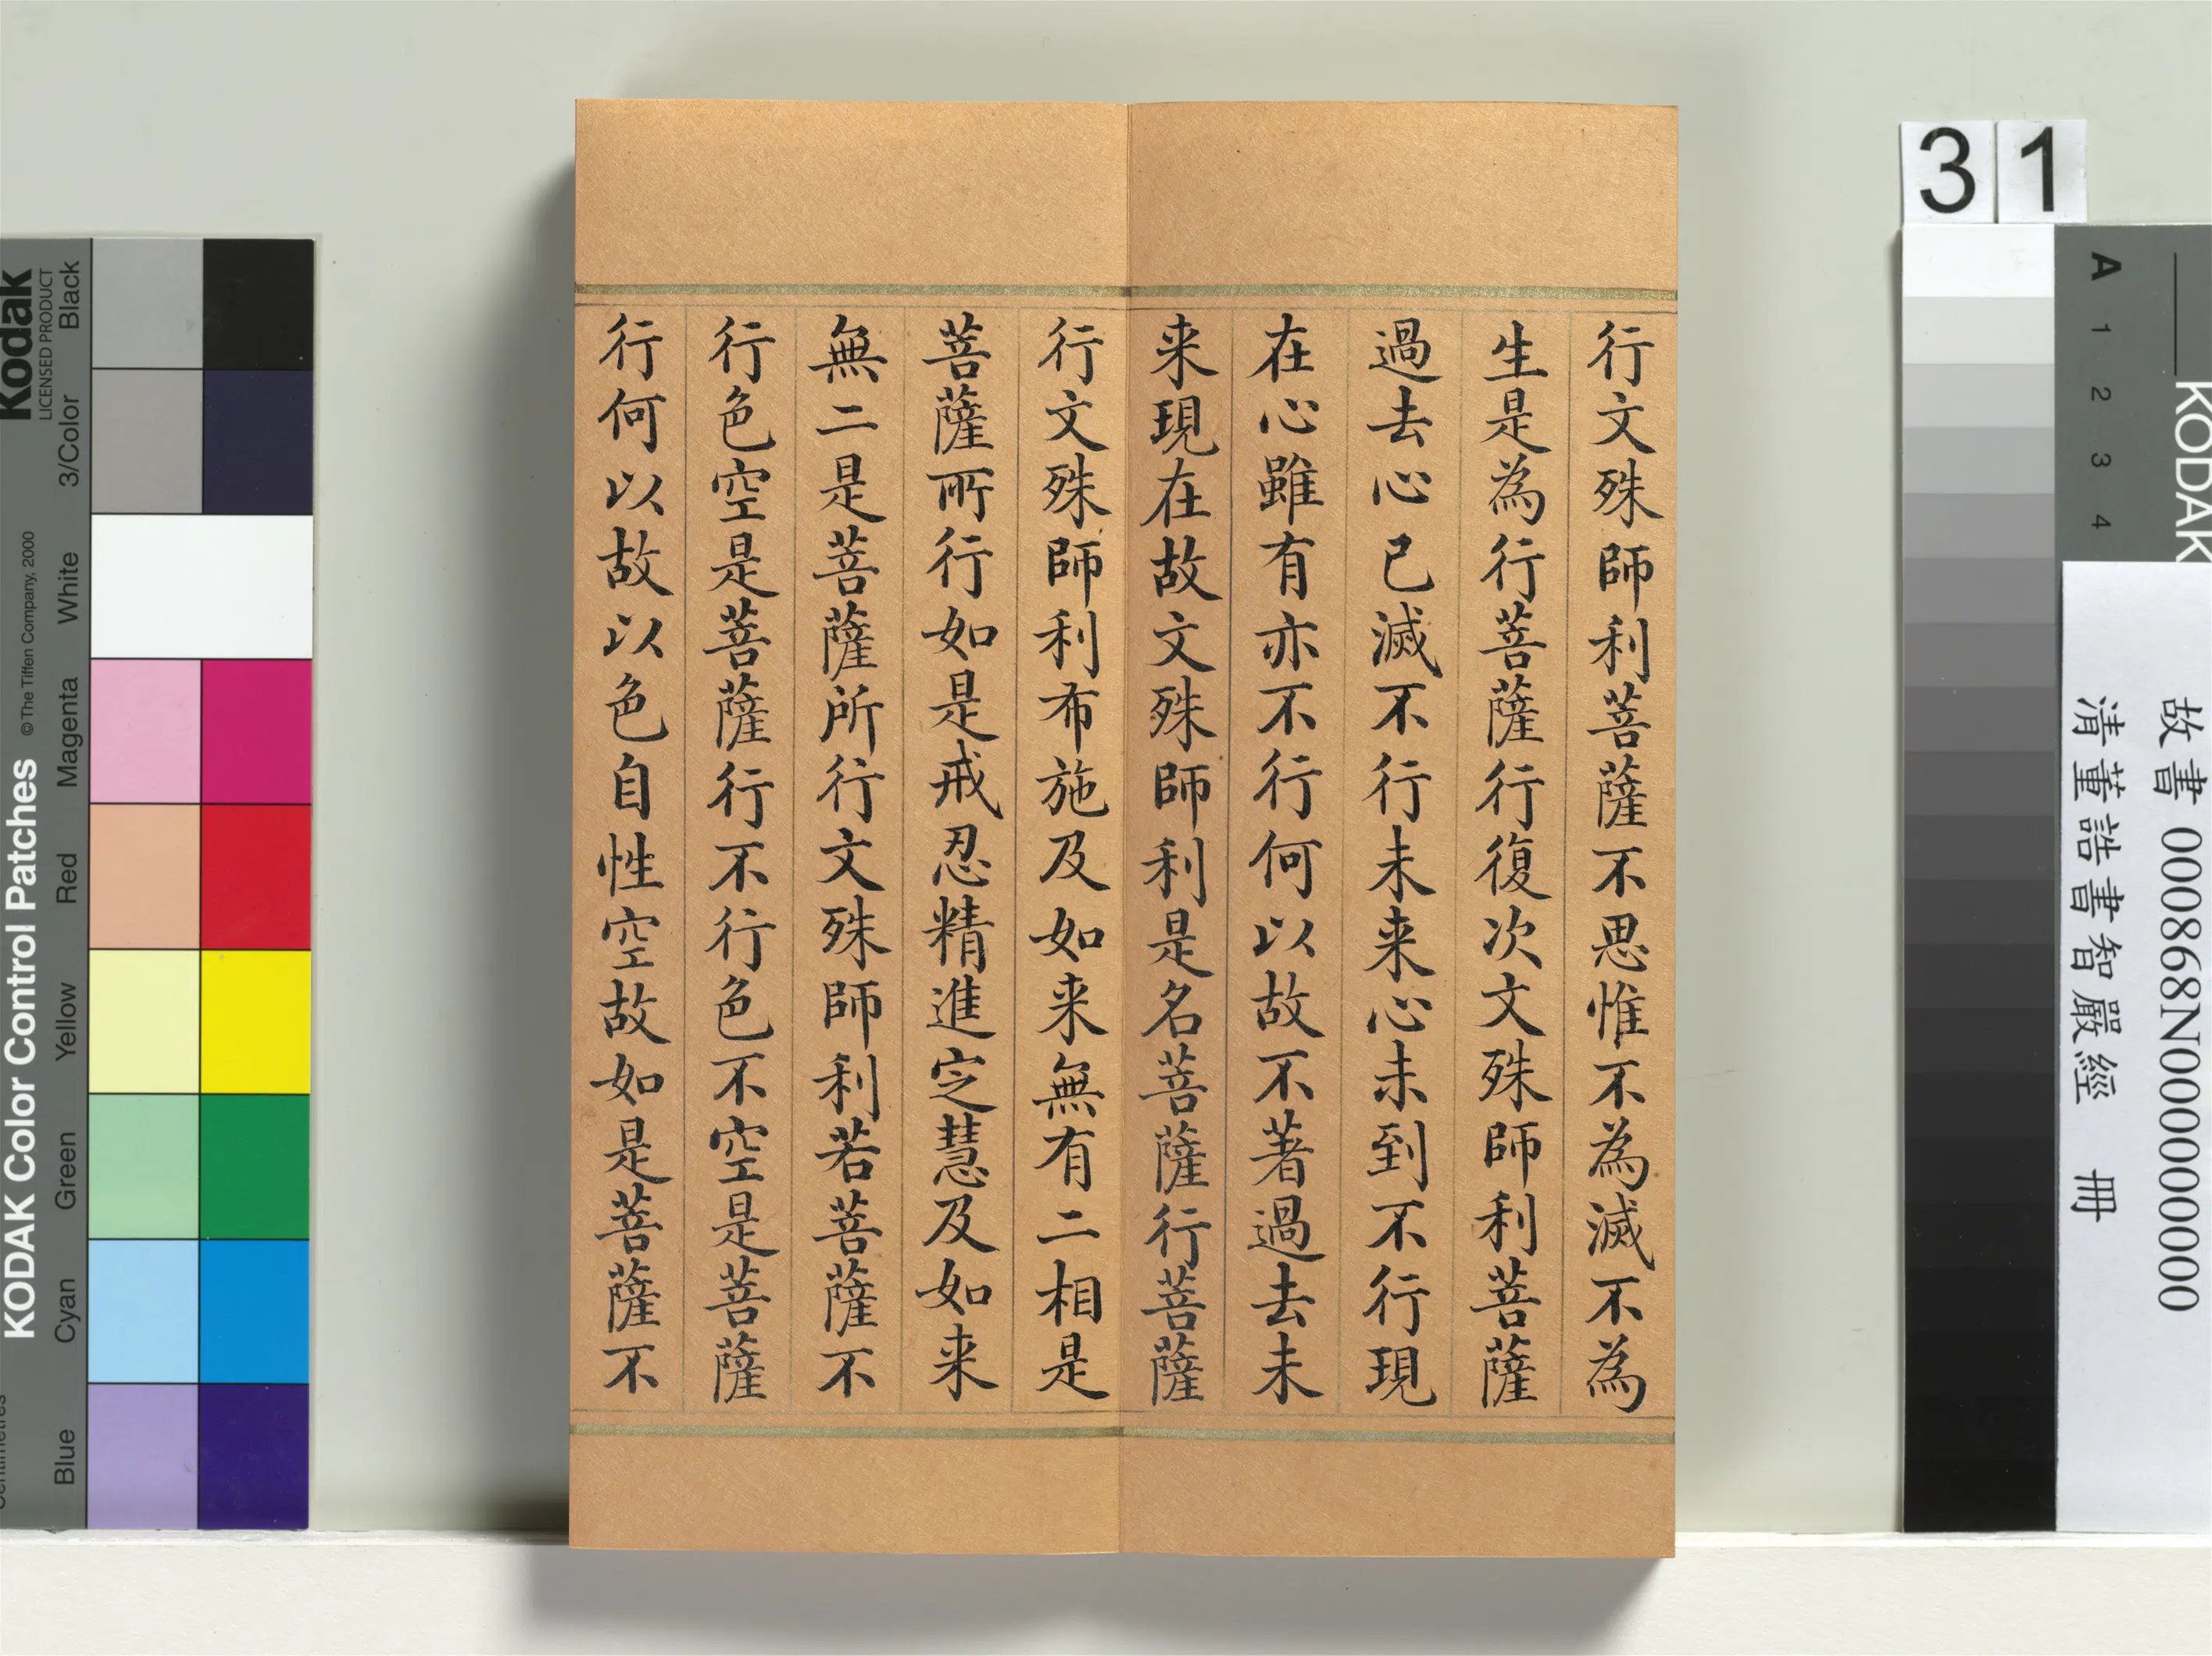 行文殊師利菩薩不思惟不為滅不為
生是為行菩薩行復次文殊師利菩薩
過去心已滅不行未来心未到不行現
在心雖有亦不行何以故不著過去未
来現在故文殊師利是名菩薩行菩薩
行文殊師利布施及如来無有二相是
菩薩所行如是戒忍精進定慧及如来
無二是菩薩所行文殊師利若菩薩不
行色空是菩薩行不行色不空是菩薩
行何以故以色自性空故如是菩薩不
31
A 1 2 3 4
KODAK
故書 000868N000000000
清董誥書智嚴經 冊
Kodak
LICENSED PRODUCT
KODAK Color Control Patches ©The Tiffen Company, 2000
Blue Cyan Green Yellow Red Magenta White 3/Color Black